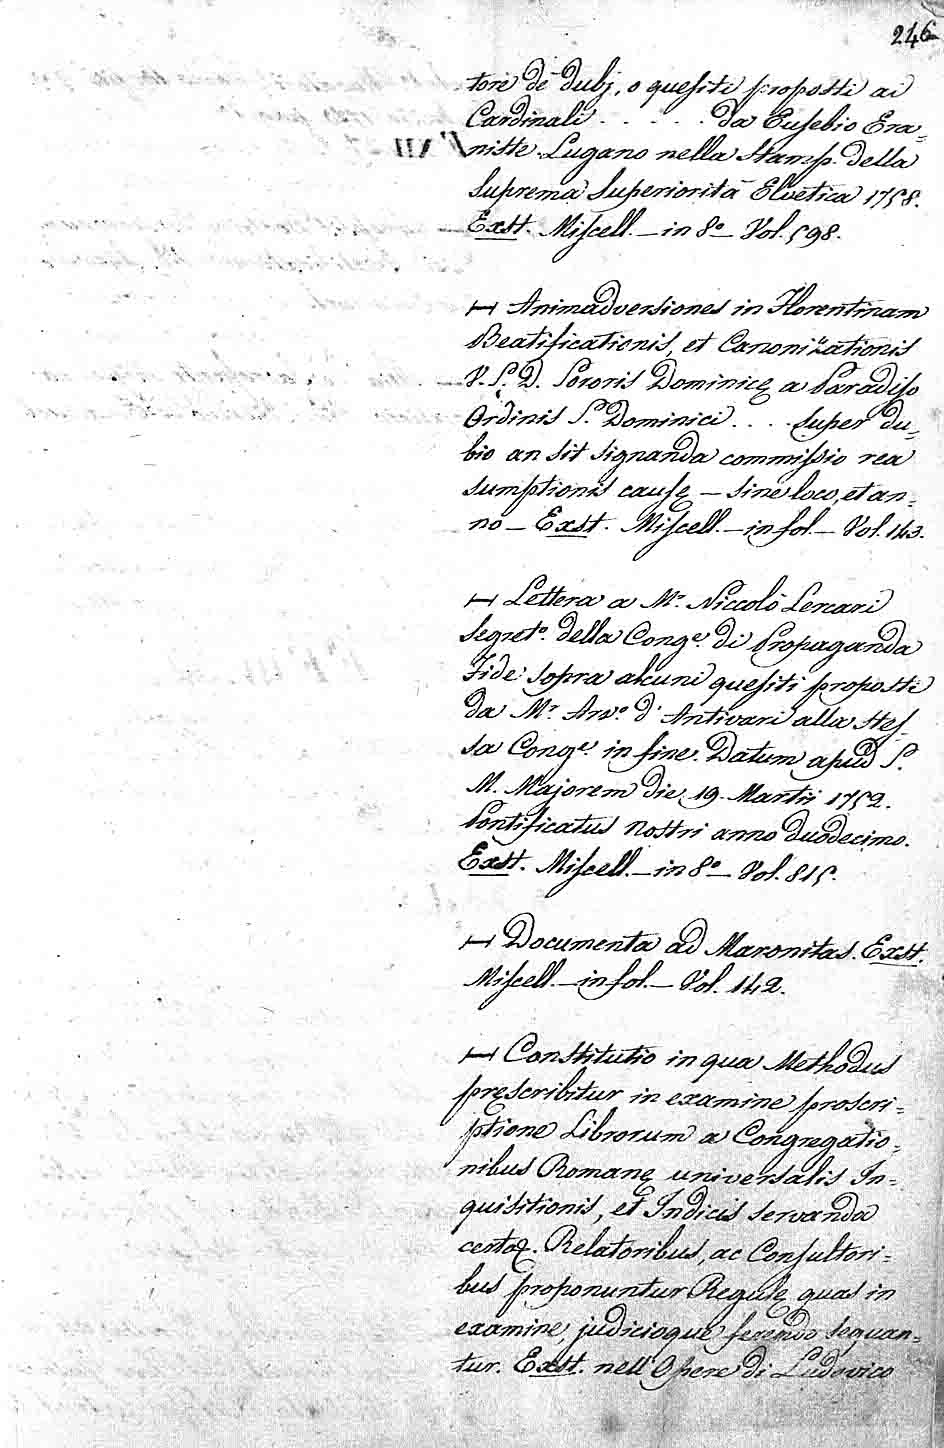 246
tore de dubj, o quesiti proposti ai
Cardinali . . . . . da Eusebio Era=
niste. Lugano nella Stamp. della
Suprema Superiorità Elvetica 1758.
Exst. Miscell. – in 8º – Vol. 598.
⊢ Animadversiones in Florentinam
Beatificationis, et Canonizationis
V. S. D. Sororis Dominicę a Paradiso
Ordinis S. Dominici . . . . super du=
bio an sit signanda commissio rea
sumptionis causę – sine loco, et an=
no – Exst. Miscell. – in fol. – Vol. 143.
⊢ Lettera a Mr. Niccolò Lercari
Segretº. della Conge. di Propaganda
Fide sopra alcuni quesiti proposti
da Mr. Arvº. d'Antivari alla stes=
sa Conge. in fine. Datum apud S.
M. Majorem die 19. Martii 1752.
Pontificatus nostri anno duodecimo.
Exst. Miscell. – in 8º – Vol. 815.
⊢ Documenta ad Maronitas. Exst.
Miscell. – in fol. – Vol. 142.
⊢ Constitutio in qua Methodus
pręscribitur in examine proscri=
ptione Librorum a Congregatio=
nibus Romanę universalis In=
quisitionis, et Indicis servanda
certaꝝ. Relatoribus, ac Consultori=
bus proponuntur Regulę quas in
examine, judicioque ferendo sequan=
tur. Exst. nell'Opere di Ludovico